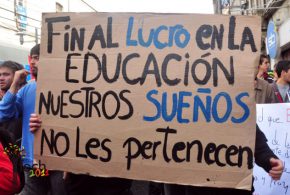 FIN AL LUCRO EN LA
EDUCACIÓN
NUESTROS SUEÑOS
NO LES PERTENECEN